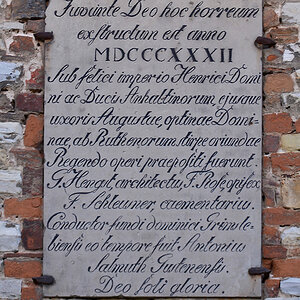 Juvante Deo hoc horreum
exstructum est anno
MDCCCXXXII
Sub felici imperio Henrici Domi
ni ac Ducis Anhaltinorum, ejusque
uxoris Augustae, optimae Domi-
nae, ab Ruthenorum stirpe oriundae
Regendo operi praepositi fuerunt
G. Hengst, architectus, F.
F. Schleuner, caementarius
Conductor fundi dominici Grimsle-
biensis eo tempore fuit Antonius
Salmuth Gustenensis.
Deo soli gloria.